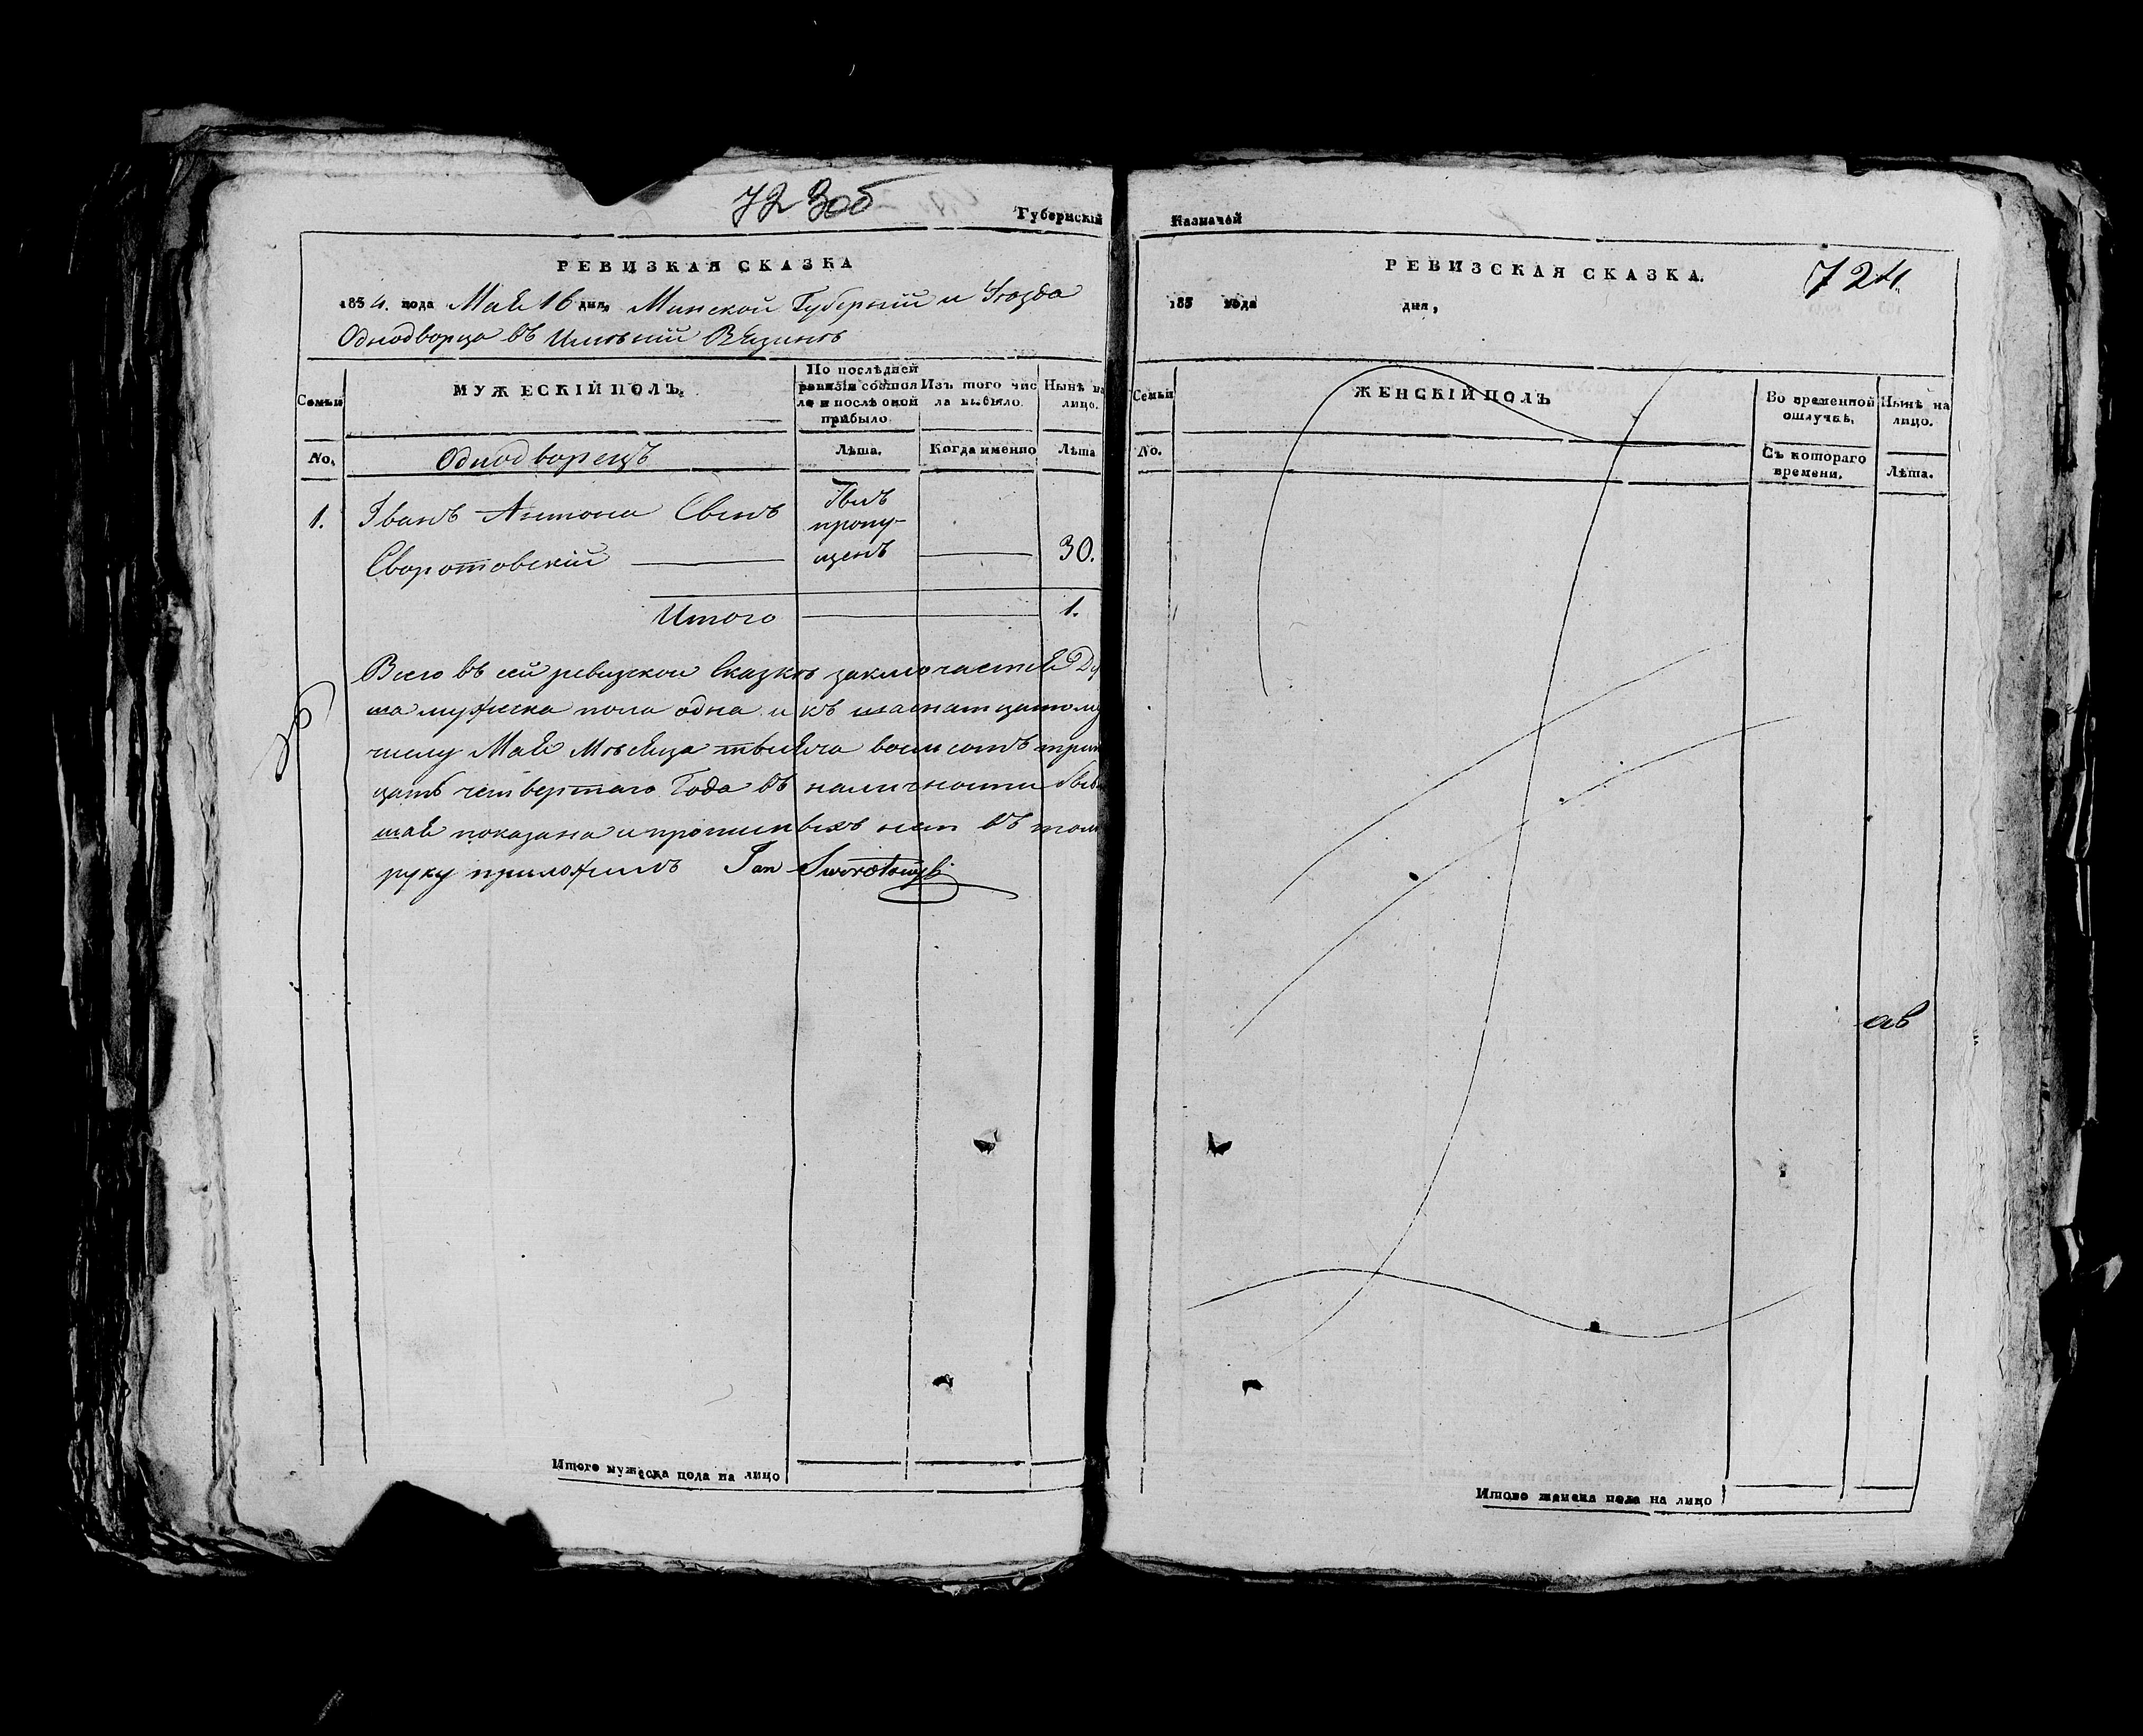 723об
Губернскій
РЕВИЗКАЯ СКАЗКА
1834. года Маія 16 дня, Минской Губерніи и Уѣзда
Однодворца въ Имѣніи Вязинѣ
Семьи
МУЖЕСКІЙ ПОЛЪ.
По послѣдней ревизіи состоя ло и послѣ оной прибыло.
Изъ того чис ла выбыло.
Нынѣ на лицо.
No.
Однодворецъ
Лѣта.
Когда именно
Лѣта
1.
Іванъ Антона Сынъ
Своротовскій
Былъ пропу-щенъ
30.
Итого
1.
Всего въ сей ревизкой Сказкѣ заключается Ду
ша мужеска пола одна и къ шаснатцатому
числу Маія Мѣсяца тысяча восмсотъ трит
цать четвертаго Года въ наличности быв
шая показана и прописныхъ нет въ том
руку приложилъ Jan Swirotowski
Итого мужеска пола на лицо
Казначей
РЕВИЗСКАЯ СКАЗКА.
724
183 года дня,
Семьи
ЖЕНСКІЙ ПОЛЪ
Во временной отлучкѣ.
Нынѣ на лицо.
No.
Съ котораго времени.
Лѣта.
Итого женска пола на лицо